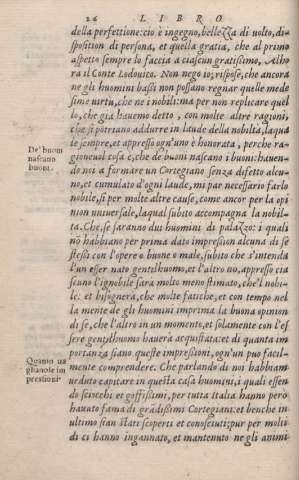 26 LIBRO
della perfettione: cio è ingegno, bellezza di uolto, di-
spposition di persona, et quella gratia, che al primo
aspetto sempre lo faccia a ciascun gratissimo. Allho
ra il Conte Lodouico. Non nego io; rispose, che ancora
ne gli huomini bassi non possano regnar quelle mede
sime uirtù, che ne i nobili: ma per non replicare quel
lo, che già hauemo detto, con molte altre ragioni,
che si potriano addurre in laude della nobilta, laqua
le sempre, et appresso ogn'uno è honorata, perche ra
De' buoni
nascano
buoni.
gioneuol cosa è, che de buoni nascano i buoni: hauen-
do noi a formare un Cortegiano senza difetto alcu-
no, et cumulato d'ogni laude, mi par necessario farlo
nobile, si per molte altre cause, come ancor per la opi
nion uniuersale, laqual subito accompagna la nobil-
ta. Che, se saranno dui huomini di palazzo: i quali
nõ habbiano per prima dato impression alcuna di se
stessi con l'opere o buone o male, subito che s'intenda
l'un esser nato gentilhuomo, et l'altro nò, appresso cia
scuno l'ignobile sara molto meno stimato, che'l nobi-
le: et bisognerà, che molte fatiche, et con tempo nel
la mente de gli huomini imprima la buona opinion
di se, che l'altro in un momento, et solamente con l'es
sere gentilhuomo hauerà acquistata: et di quanta im
Quanto ua
gliano le im
pressioni.
portanza siano queste impressioni, ogn'un può facil-
mente comprendere. Che parlando di noi habbiam
ueduto capitare in questa casa huomini, i quali essen
do sciocchi et goffissimi, per tutta Italia hanno però
hauuto fama di grãdissimi Cortegiani: et benche in
ultimo sian stati scoperti et conosciuti; pur per molti
dì ci hanno ingannato, et mantenuto ne gli animi